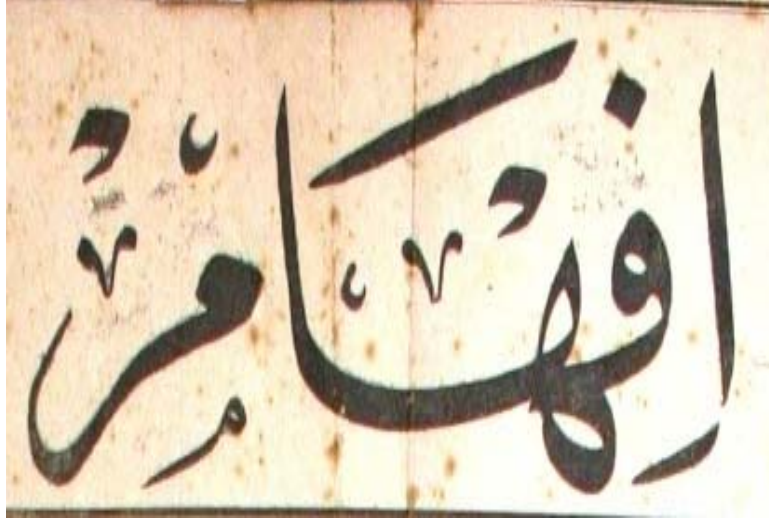 افهام